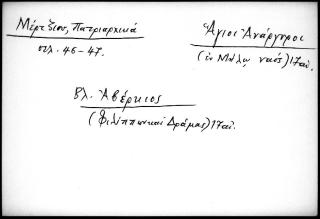 Μέρτζιου, Πατριαρχικά
σελ. 46-47.
Ἅγιοι Ἀνάργυροι
(ἐν Μήλῳ ναός) 17 αἰ.
Βλ. Ἀβέρκιος
(Φιλίππων καί Δράμας) 17 αἰ.